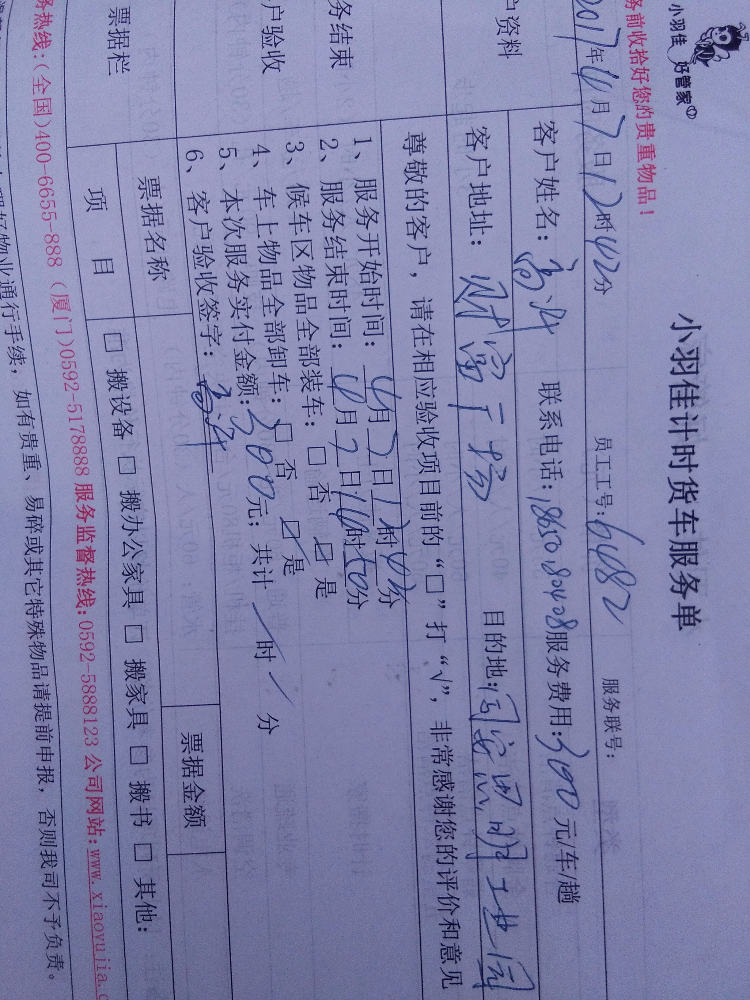 小羽佳 好管家
小羽佳计时货车服务单
务前收拾好您的贵重物品！
2017年4月7日12时42分 员工工号：6482 服务联号：
户资料
客户姓名： 联系电话：1865080408 服务费用：300元/车/趟
客户地址：财富广场 目的地：同安思明工业园
尊敬的客户，请在相应验收项目前的“□”打“√”，非常感谢您的评价和意见
务结束
户验收
1、服务开始时间：4月7日12时42分
2、服务结束时间：4月7日16时50分
3、候车区物品全部装车：□ 否 ☑ 是
4、车上物品全部卸车：□ 否 ☑ 是
5、本次服务实付金额：300元；共计 / 时 / 分
6、客户验收签字：
票据栏
票据名称 票据金额
项 目 □ 搬设备 □ 搬办公家具 □ 搬家具 □ 搬书 □ 其他：
务热线：(全国)400-6655-888 (厦门)0592-5178888 服务监督热线：0592-5888123 公司网站：www.xiaoyujia.c
理好物业通行手续，如有贵重、易碎或其它特殊物品请提前申报，否则我司不予负责。